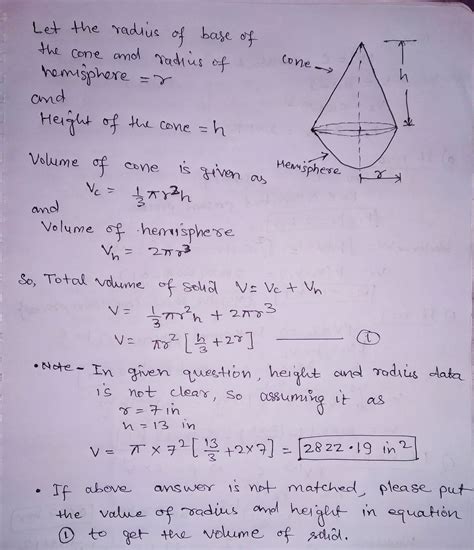 Let the radius of base of
the cone and radius of
hemisphere = r
and
Height of the cone = h
cone
h
Hemisphere
r
Volume of cone is given as
Vc = 1/3 πr²h
and
Volume of hemisphere
Vh = 2πr³
So, Total volume of solid V = Vc + Vh
V = 1/3 πr²h + 2πr³
V = πr² [h/3 + 2r] —— ①
• Note - In given question, height and radius data
is not clear, so assuming it as
r = 7 in
h = 13 in
V = π × 7² [13/3 + 2×7] = 2822.19 in²
• If above answer is not matched, please put
the value of radius and height in equation
① to get the volume of solid.